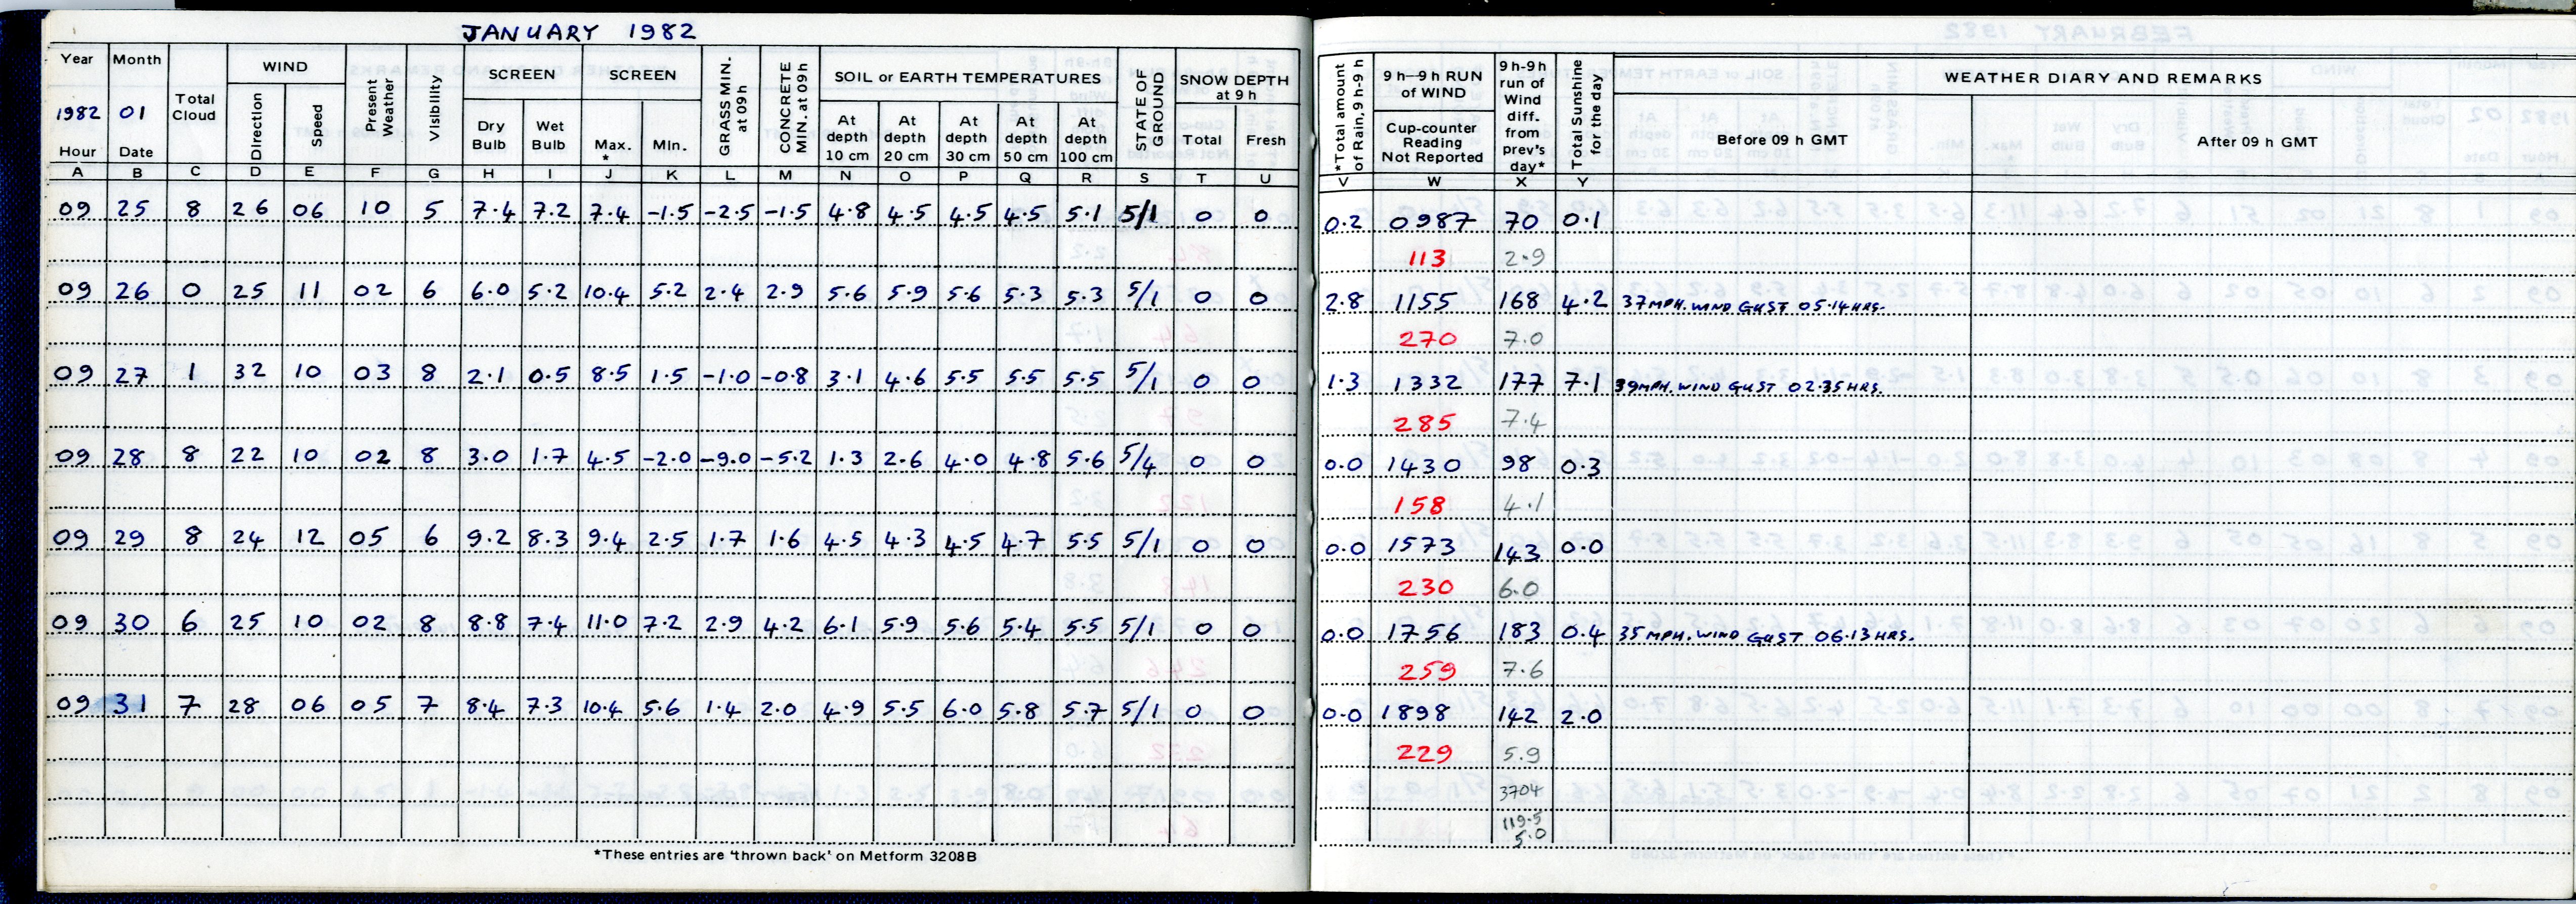 JANUARY 1982
Year Month Total Cloud WIND Present Weather Visibility SCREEN SCREEN GRASS MIN. at 09h CONCRETE MIN. at 09h SOIL or EARTH TEMPERATURES STATE OF GROUND SNOW DEPTH at 9 h
1982 01 Direction Speed Dry Bulb Wet Bulb Max. * Min. At depth 10 cm At depth 20 cm At depth 30 cm At depth 50 cm At depth 100 cm Total Fresh
Hour Date
A B C D E F G H I J K L M N O P Q R S T U
09 25 8 26 06 10 5 7.4 7.2 7.4 -1.5 -2.5 -1.5 4.8 4.5 4.5 4.5 5.1 5/1 0 0
09 26 0 25 11 02 6 6.0 5.2 10.4 5.2 2.4 2.9 5.6 5.9 5.6 5.3 5.3 5/1 0 0
09 27 1 32 10 03 8 2.1 0.5 8.5 1.5 -1.0 -0.8 3.1 4.6 5.5 5.5 5.5 5/1 0 0
09 28 8 22 10 02 8 3.0 1.7 4.5 -2.0 -9.0 -5.2 1.3 2.6 4.0 4.8 5.6 5/4 0 0
09 29 8 24 12 05 6 9.2 8.3 9.4 2.5 1.7 1.6 4.5 4.3 4.5 4.7 5.5 5/1 0 0
09 30 6 25 10 02 8 8.8 7.4 11.0 7.2 2.9 4.2 6.1 5.9 5.6 5.4 5.5 5/1 0 0
09 31 7 28 06 05 7 8.4 7.3 10.4 5.6 1.4 2.0 4.9 5.5 6.0 5.8 5.7 5/1 0 0
*These entries are 'thrown back' on Metform 3208B
*Total amount of Rain, 9 h-9 h 9 h-9 h RUN of WIND 9 h-9 h run of Wind diff. from prev's day* Total Sunshine for the day WEATHER DIARY AND REMARKS
Cup-counter Reading Not Reported Before 09 h GMT After 09 h GMT
V W X Y
0.2 0987 70 0.1
113 2.9
2.8 1155 168 4.2 37 MPH. WIND GUST 05.14 HRS.
270 7.0
1.3 1332 177 7.1 39 MPH. WIND GUST 02.35 HRS.
285 7.4
0.0 1430 98 0.3
158 4.1
0.0 1573 143 0.0
230 6.0
0.0 1756 183 0.4 35 MPH. WIND GUST 06.13 HRS.
259 7.6
0.0 1898 142 2.0
229 5.9
3704
119.5
5.0